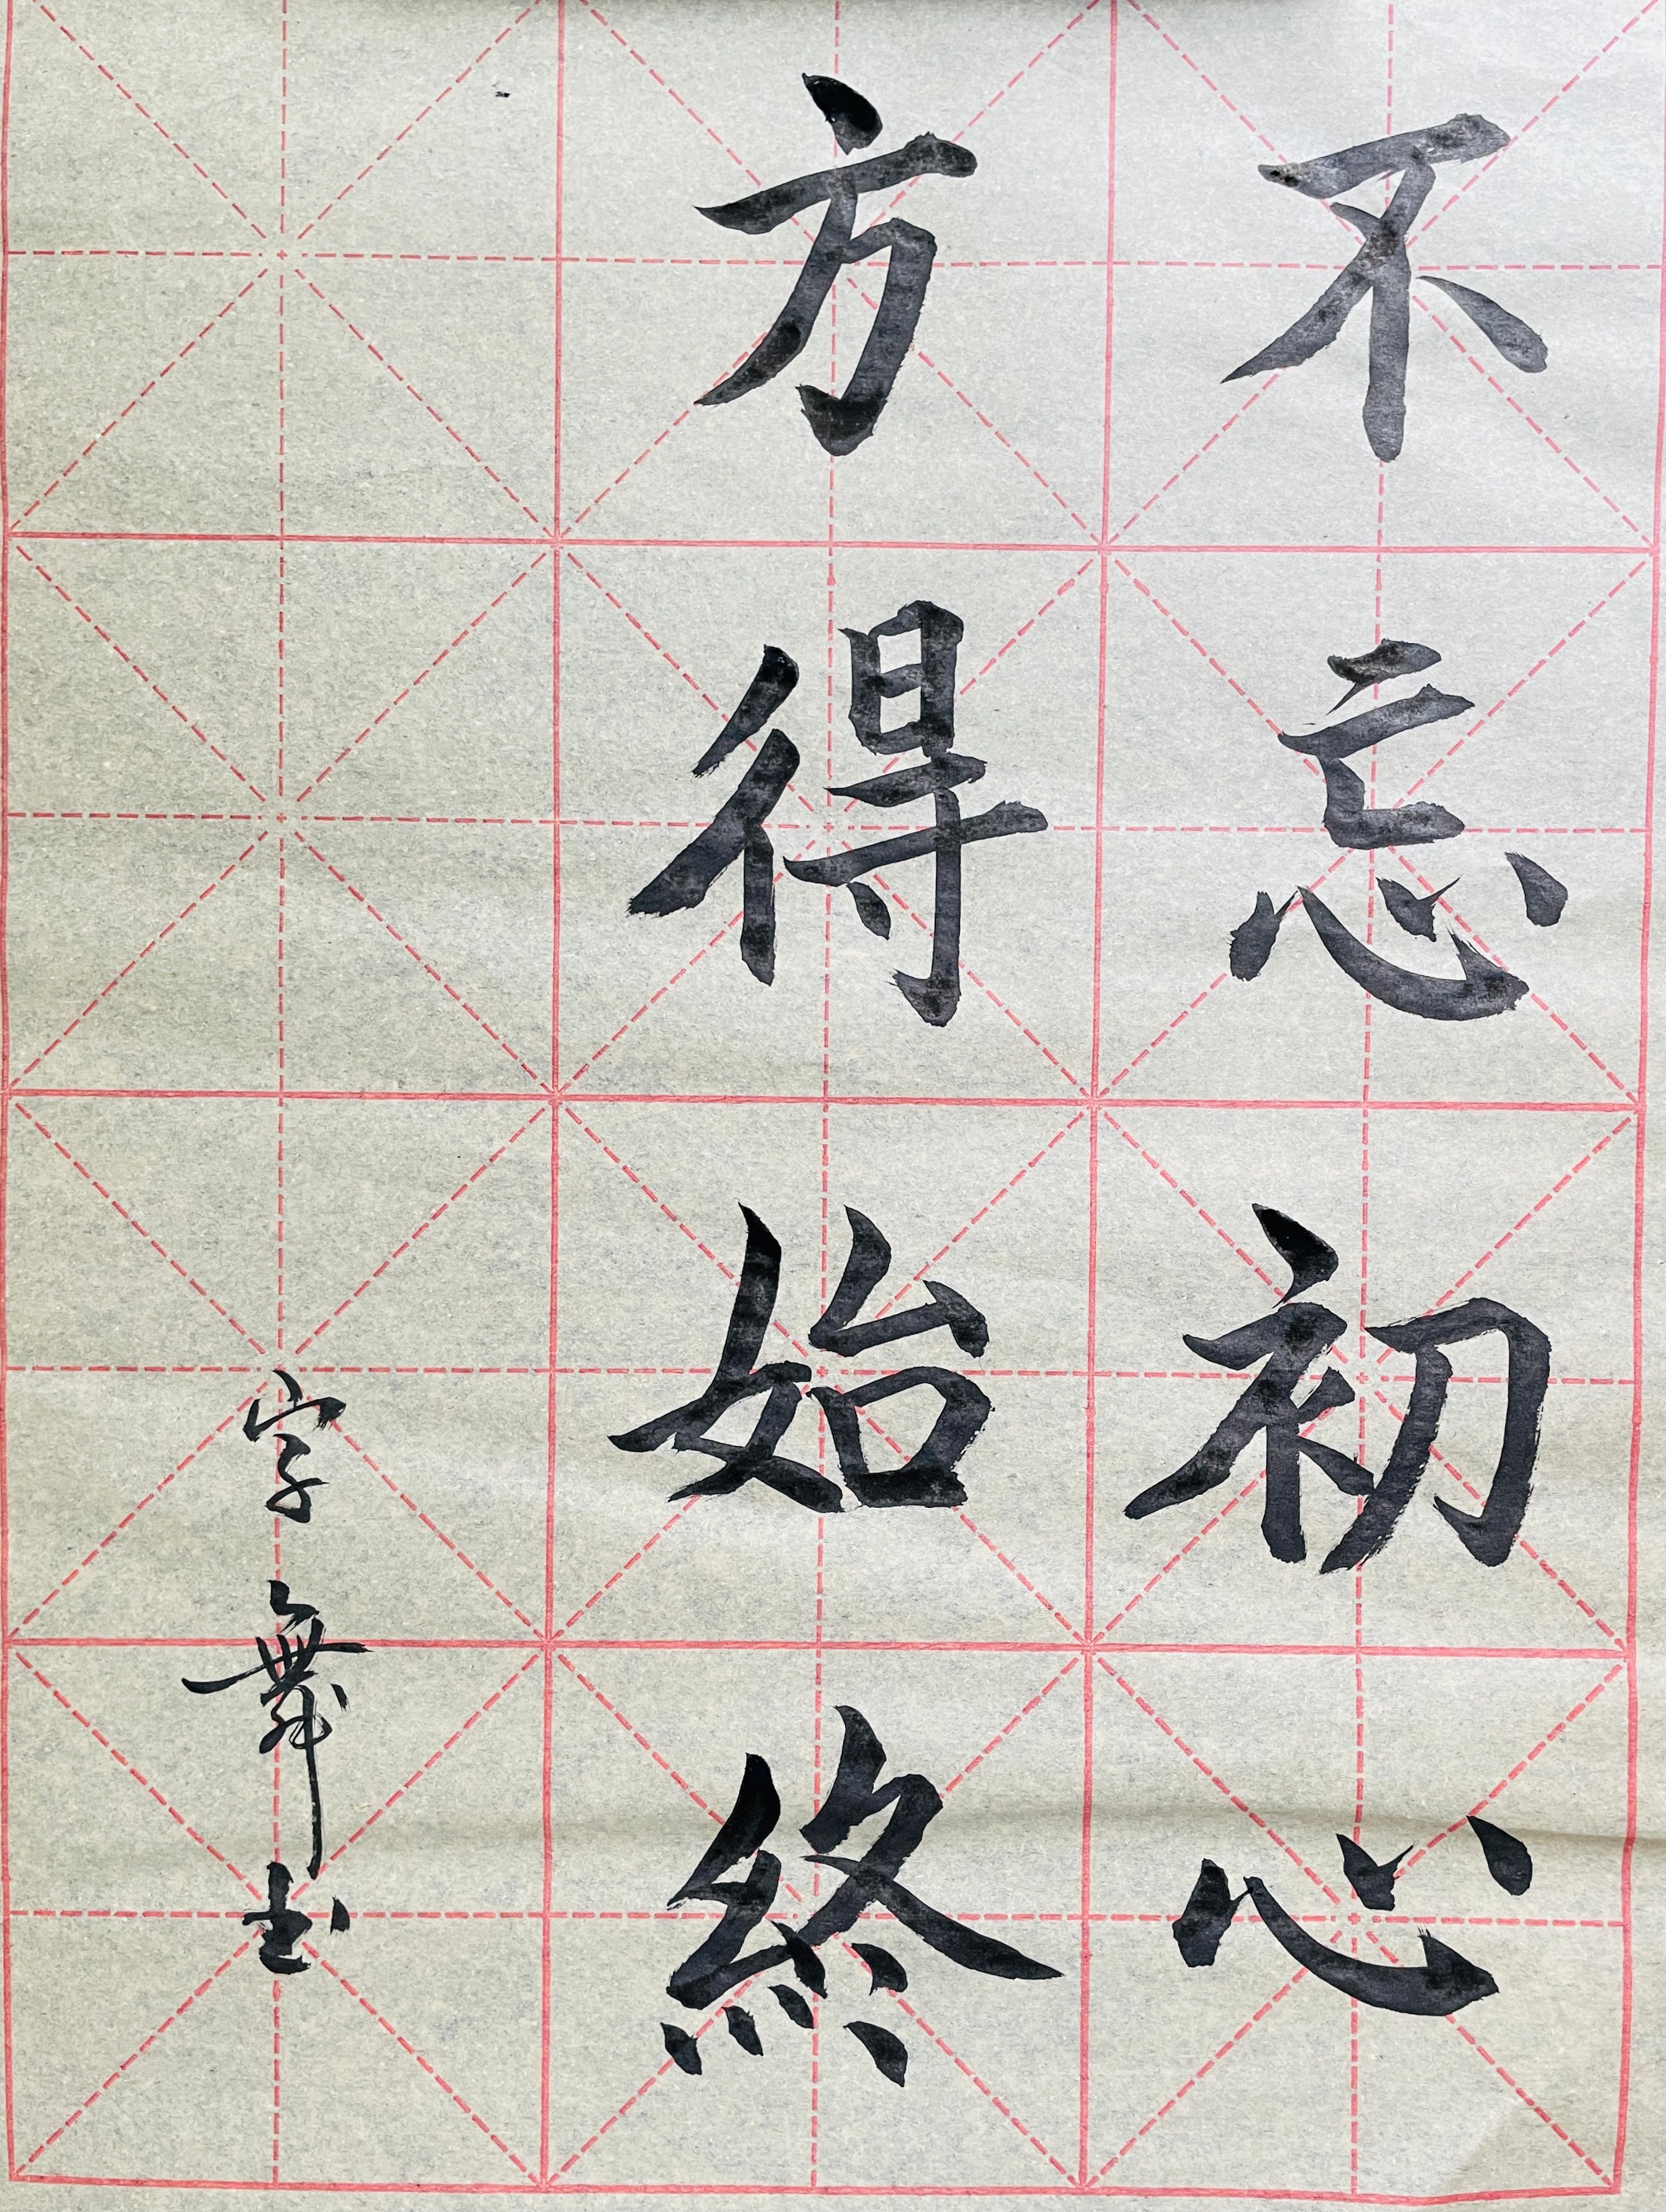 不忘初心
方得始終
字舞书